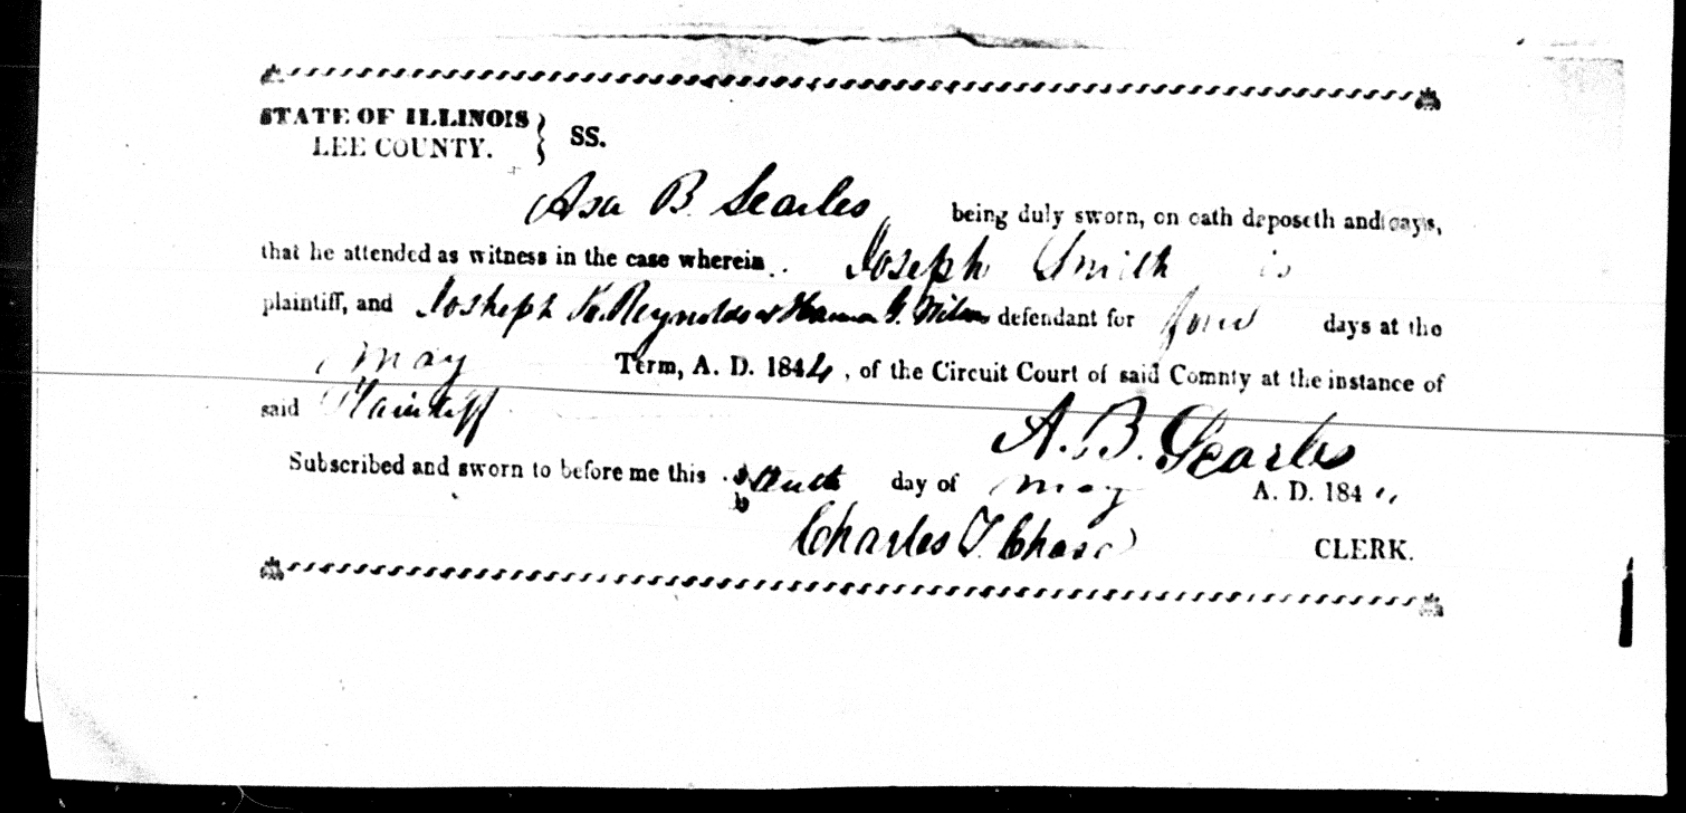 STATE OF ILLINOIS } SS.
LEE COUNTY.
Asa B. Searles, being duly sworn, on oath deposeth and says,
that he attended as witness in the case wherein Joseph Smith is
plaintiff, and Josheph H. Reynolds & Harmon G. Wilson defendant for four days at the
May Term, A. D. 1844, of the Circuit Court of said Comnty at the instance of
said Plaintiff
A. B. Searles
Subscribed and sworn to before me this day of May A. D. 184
Charles T. Chase CLERK.